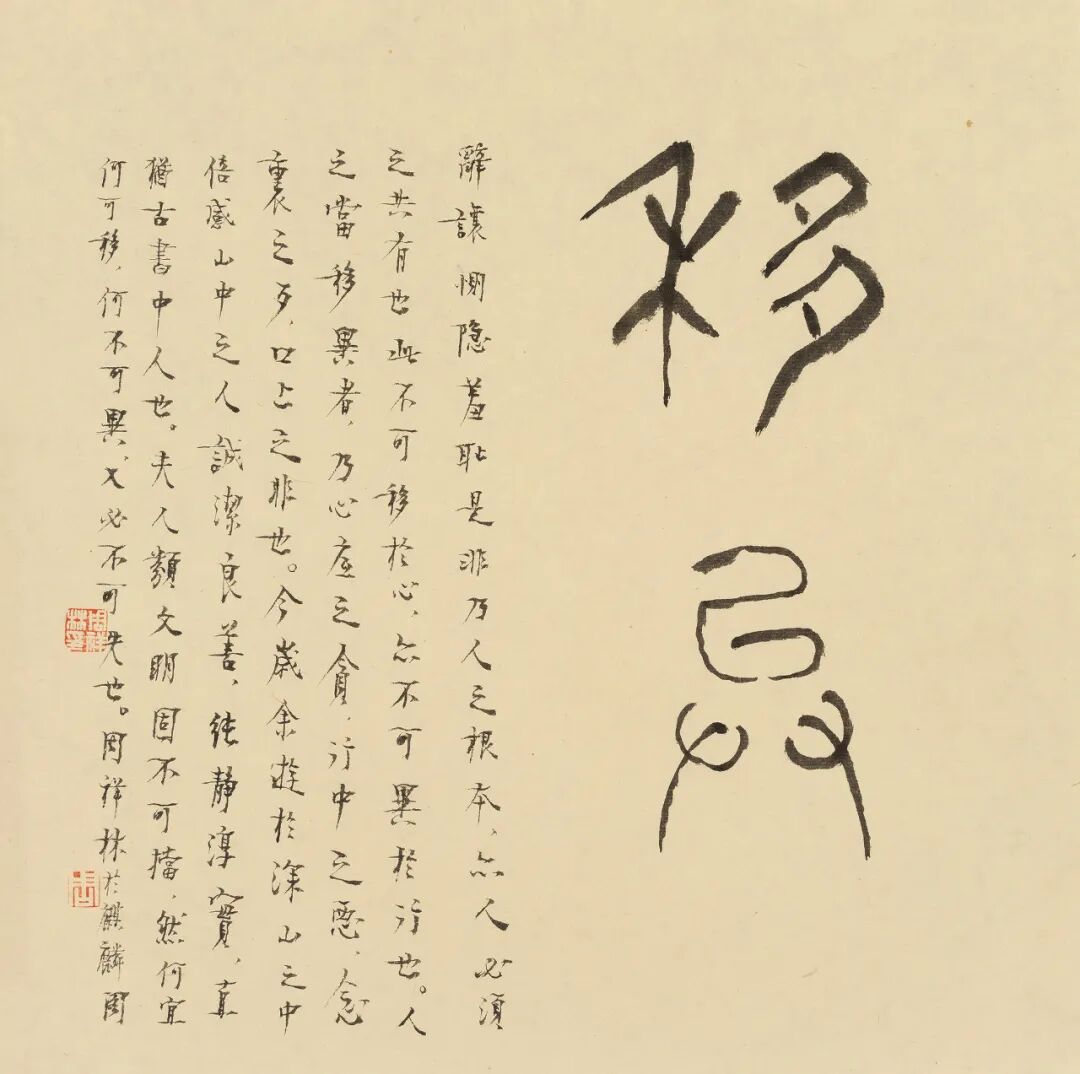 移异
辭讓惻隐羞耻是非乃人之根本、亦人必須
之共有也此不可移於心、亦不可異於行也。人
之當移異者、乃心底之貪、行中之惡、念
裏之歹、口上之非也。今歲余遊於深山之中
倍感山中之人誠潔良善、純静淳實、直
猶古書中人也。夫人類文明固不可擋、然何宜
何可移、何不可異、又必不可失也。周祥林於麒麟
周祥林印